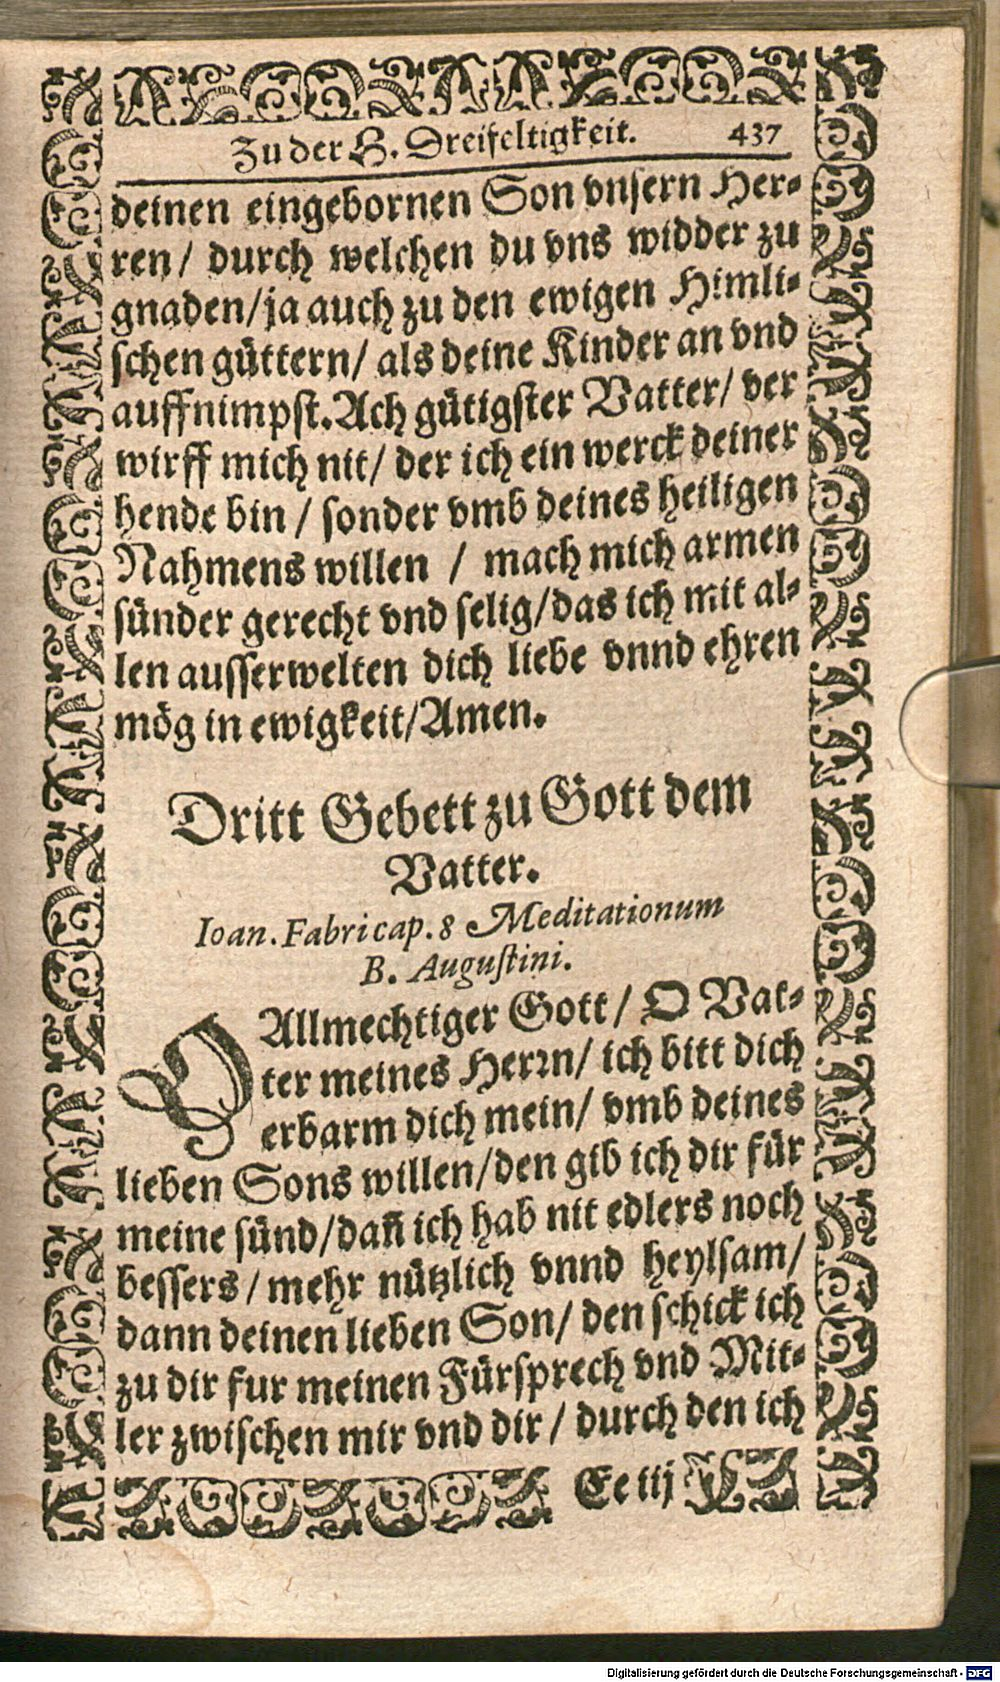 Zu der H. Dreifeltigkeit. 437
deinen eingebornen Son vnsern Her-
ren/ durch welchen du vns widder zu
gnaden/ja auch zu den ewigen Himli-
schen güttern/ als deine Kinder an vnd
auffnimpst. Ach gütigster Vatter/ ver
wirff mich nit/ der ich ein werck deiner
hende bin / sonder vmb deines heiligen
Nahmens willen / mach mich armen
sünder gerecht vnd selig/das ich mit al-
len ausserwelten dich liebe vnnd ehren
mög in ewigkeit/Amen.
Dritt Gebett zu Gott dem
Vatter.
Ioan. Fabri cap. 8 Meditationum
B. Augustini.
O Allmechtiger Gott/ O Vat-
ter meines Herrn/ ich bitt dich
erbarm dich mein/ vmb deines
lieben Sons willen/den gib ich dir für
meine sünd/dañ ich hab nit edlers noch
bessers / mehr nützlich vnnd heylsam/
dann deinen lieben Son/ den schick ich
zu dir fur meinen Fürsprech vnd Mit-
ler zwischen mir vnd dir / durch den ich
Ee iij
Digitalisierung gefördert durch die Deutsche Forschungsgemeinschaft - DFG